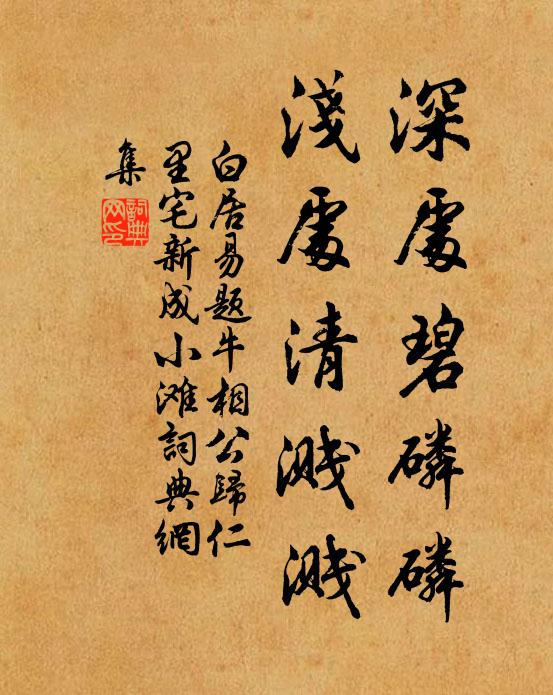 深處碧磷磷
淺處清濺濺
白居易題牛相公歸仁
里宅新成小滩詞典網
集
詞典网印